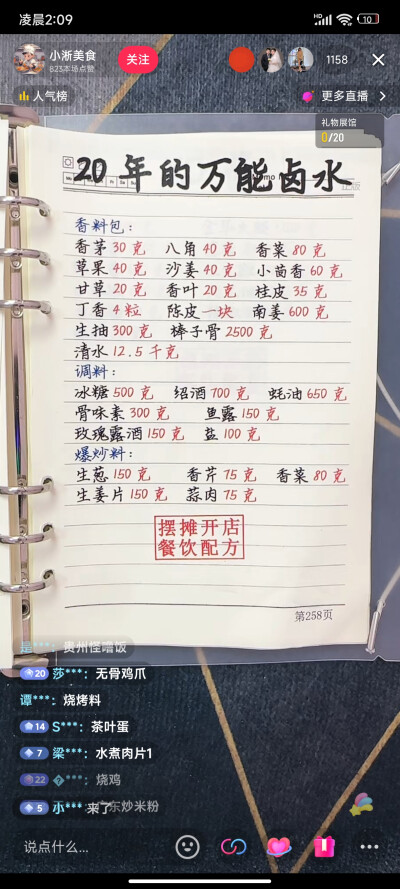 凌晨2:09
HD
10
小浙美食
823本场点赞
关注
1158
人气榜
更多直播
礼物展馆
0/20
20年的万能卤水
香料包：
香茅30克 八角40克 香菜80克
草果40克 沙姜40克 小茴香60克
甘草20克 香叶20克 桂皮35克
丁香4粒 陈皮一块 南姜600克
生抽300克 棒子骨2500克
清水12.5千克
调料：
冰糖500克 绍酒700克 蚝油650克
骨味素300克 鱼露150克
玫瑰露酒150克 盐100克
爆炒料：
生葱150克 香芹75克 香菜80克
生姜片150克 蒜肉75克
摆摊开店
餐饮配方
第258页
贵州怪噜饭
20 莎***：无骨鸡爪
谭***：烧烤料
14 S***：茶叶蛋
7 梁***：水煮肉片1
22 ***：烧鸡
5 小***来了
广东炒米粉
说点什么...